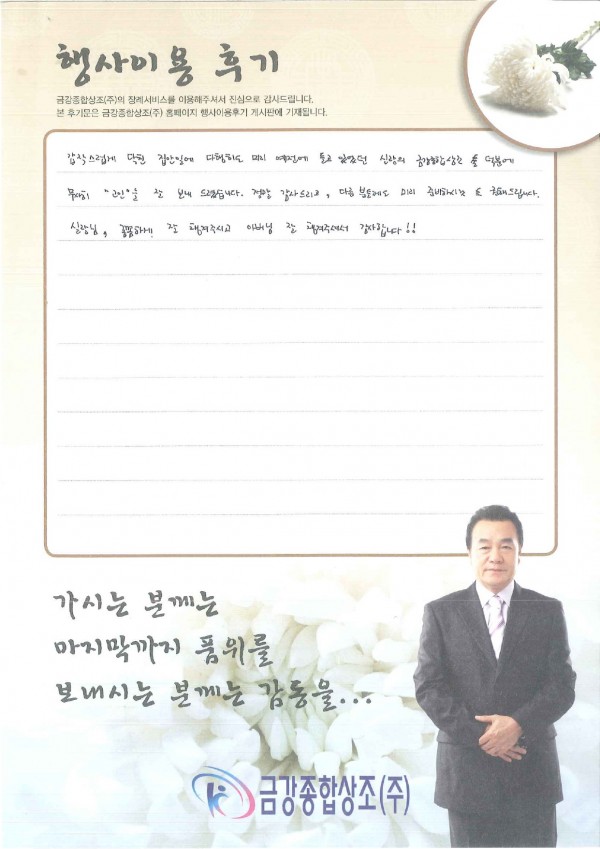 행사이용 후기
금강종합상조(주)의 장례서비스를 이용해주셔서 진심으로 감사드립니다.
본 후기문은 금강종합상조(주) 홈페이지 행사이용후기 게시판에 기재됩니다.
갑작스럽게 닥친 집안일에 다행히도 미리 예전에 들고 있었던 신랑의 금강종합상조 를 덕분에
무사히 "고인"을 잘 보내 드렸습니다. 정말 감사드리고, 다른 분들에도 미리 준비하시는 도 추천드립니다.
실장님, 꼼꼼하게 잘 챙겨주시고 아버님 잘 챙겨주셔서 감사합니다!!
가시는 분께는
마지막까지 품위를
보내시는 분께는 감동을...
금강종합상조(주)